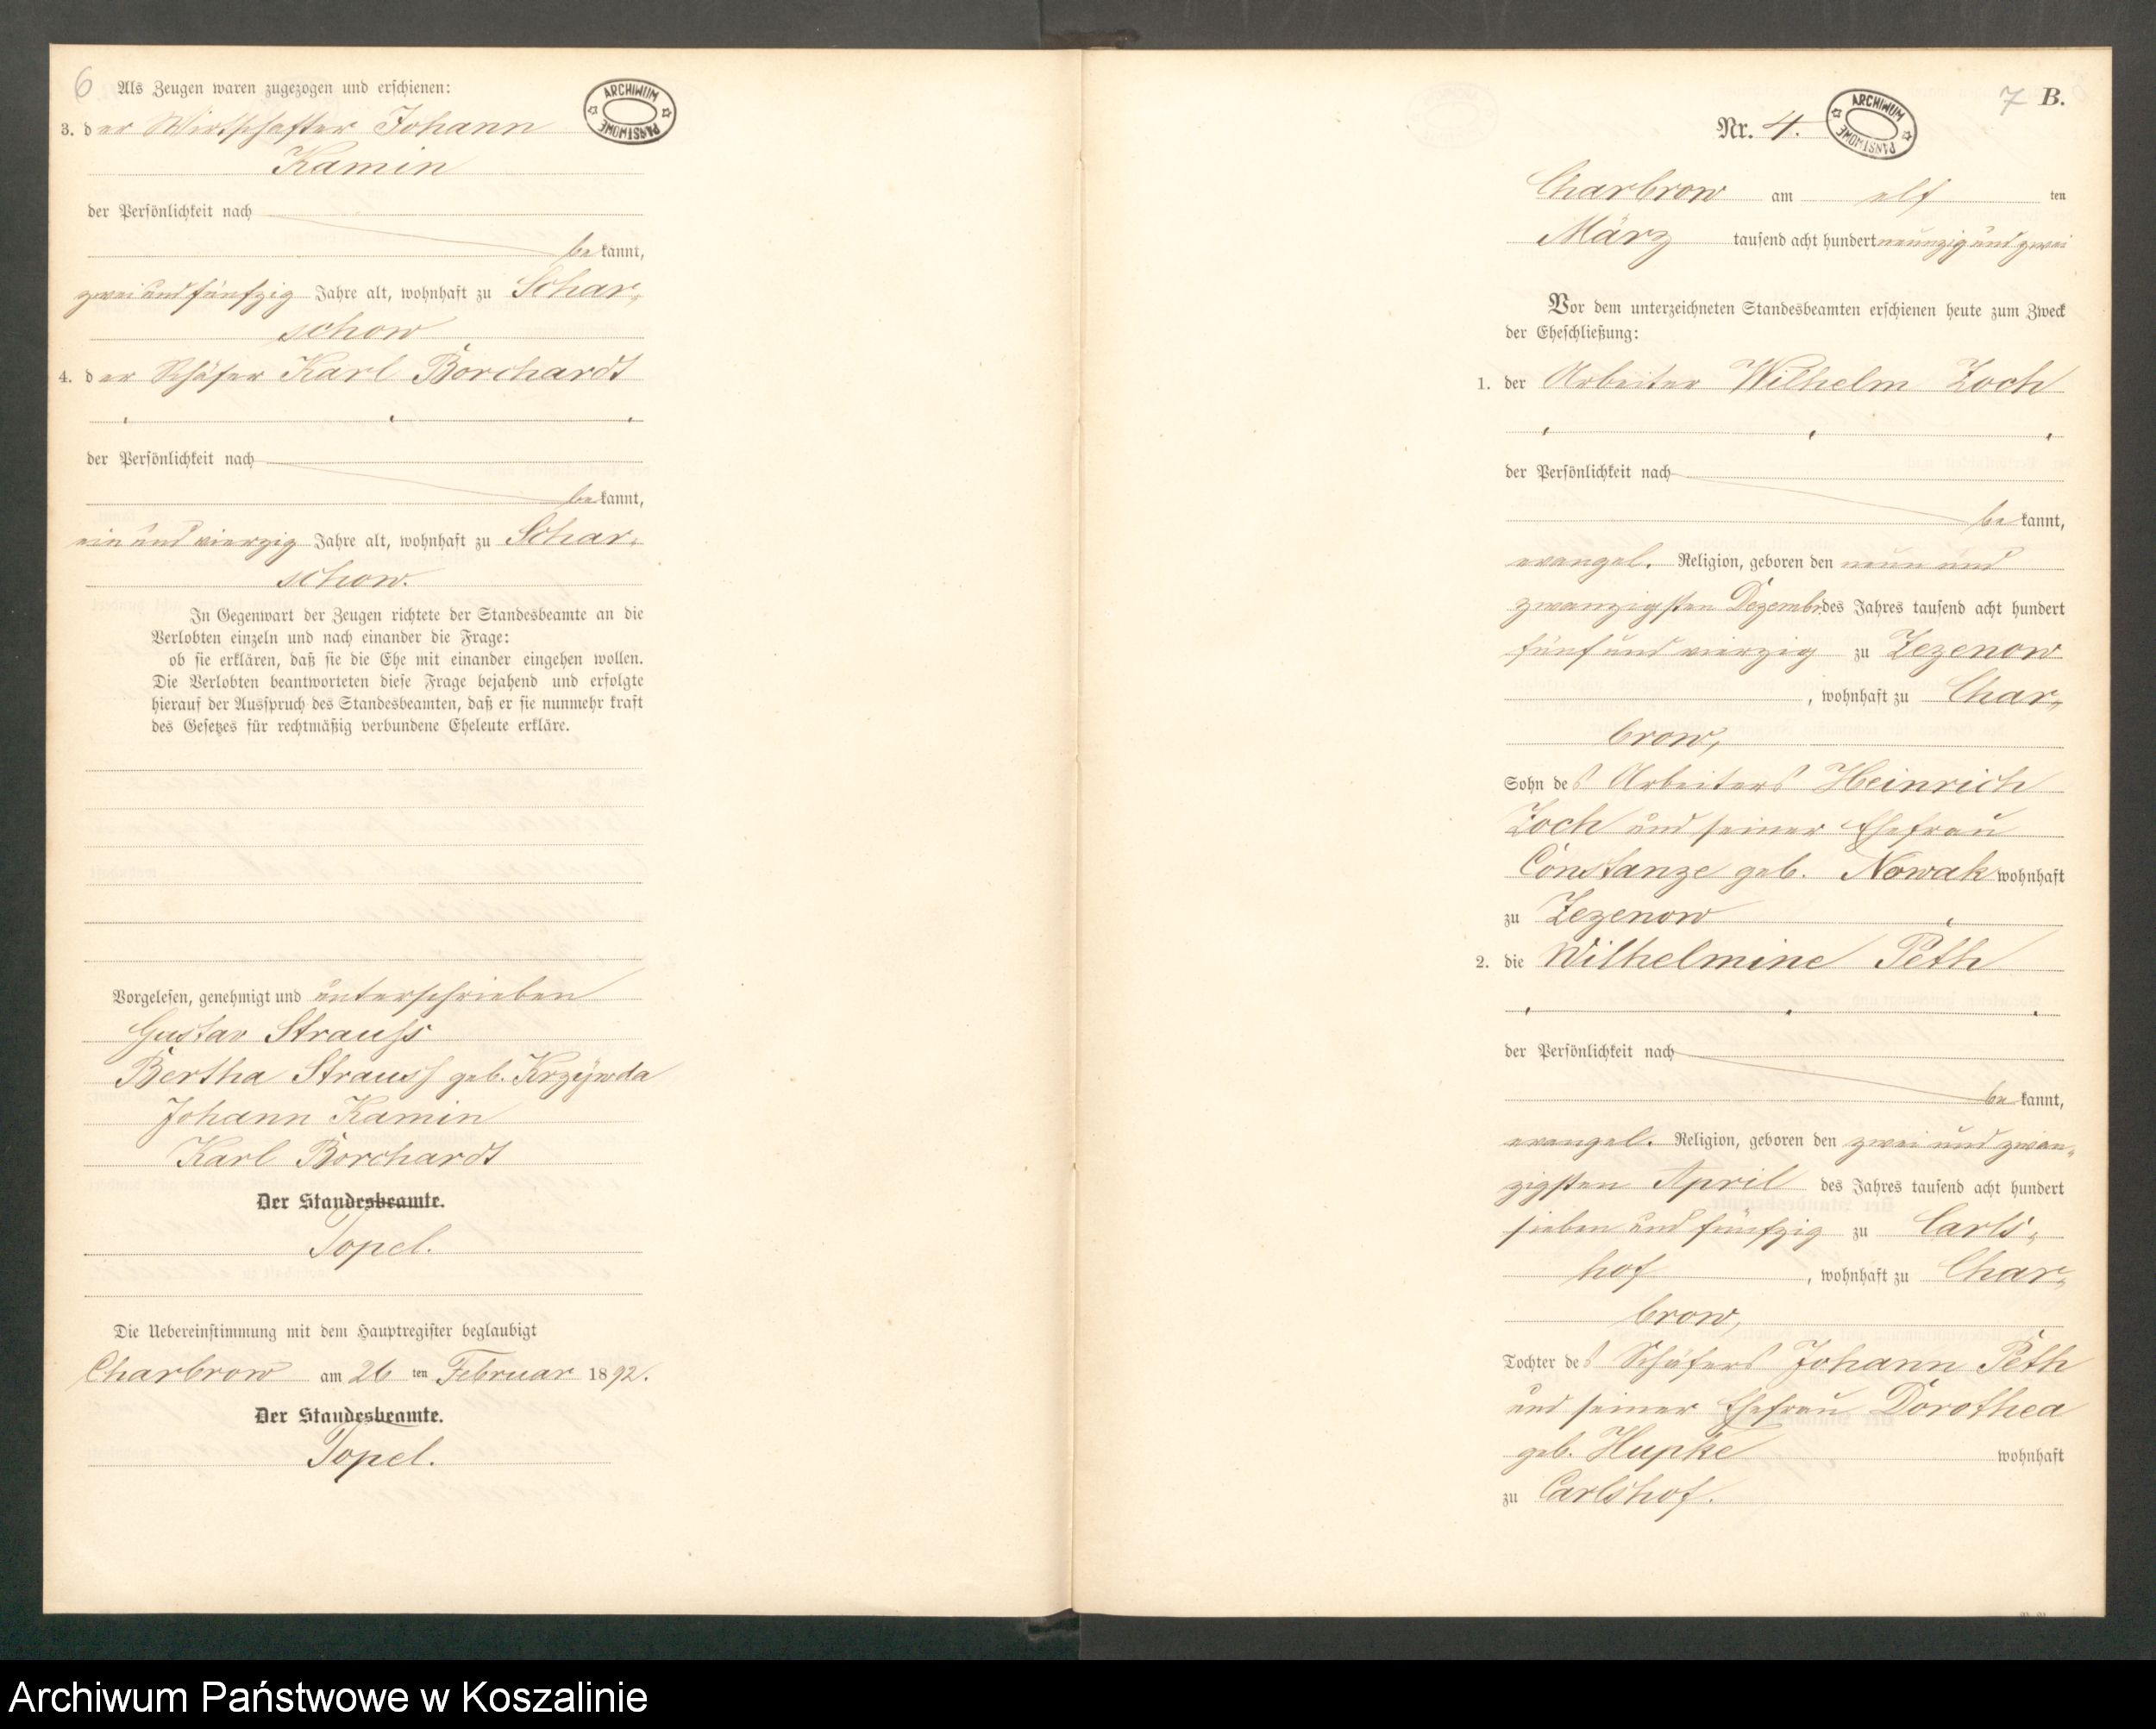 6 Als Zeugen waren zugezogen und erschienen:
ARCHIWUM PAŃSTWOWE
3. der Wirtschafter Johann
Kamin
der Persönlichkeit nach
bekannt,
zwei und fünfzig Jahre alt, wohnhaft zu Schar-
schow
4. der Schäfer Karl Borchardt
der Persönlichkeit nach
bekannt,
ein und vierzig Jahre alt, wohnhaft zu Schar-
schow.
In Gegenwart der Zeugen richtete der Standesbeamte an die
Verlobten einzeln und nach einander die Frage:
ob sie erklären, daß sie die Ehe mit einander eingehen wollen.
Die Verlobten beantworteten diese Frage bejahend und erfolgte
hierauf der Ausspruch des Standesbeamten, daß er sie nunmehr kraft
des Gesetzes für rechtmäßig verbundene Eheleute erkläre.
Vorgelesen, genehmigt und unterschrieben
Gustav Strauss
Bertha Strauss geb. Krzÿwda
Johann Kamin
Karl Borchardt
Der Standesbeamte.
Topel.
Die Uebereinstimmung mit dem Hauptregister beglaubigt
Charbrow am 26 ten Februar 1892.
Der Standesbeamte.
Topel.
7 B.
Nr. 4.
ARCHIWUM PAŃSTWOWE
Charbrow am elf ten
März tausend acht hundert neunzig und zwei
Vor dem unterzeichneten Standesbeamten erschienen heute zum Zweck
der Eheschließung:
1. der Arbeiter Wilhelm Zoch
der Persönlichkeit nach
bekannt,
evangel. Religion, geboren den neun und
zwanzigsten Dezember des Jahres tausend acht hundert
fünf und vierzig zu Zezenow
, wohnhaft zu Char-
brow,
Sohn des Arbeiters Heinrich
Zoch und seiner Ehefrau
Constanze geb. Nowak wohnhaft
zu Zezenow
2. die Wilhelmine Peth
der Persönlichkeit nach
bekannt,
evangel. Religion, geboren den zwei und zwan-
zigsten April des Jahres tausend acht hundert
sieben und fünfzig zu Carls-
hof, wohnhaft zu Char-
brow,
Tochter des Schäfers Johann Peth
und seiner Ehefrau Dorothea
geb. Hupke wohnhaft
zu Carlshof.
Archiwum Państwowe w Koszalinie